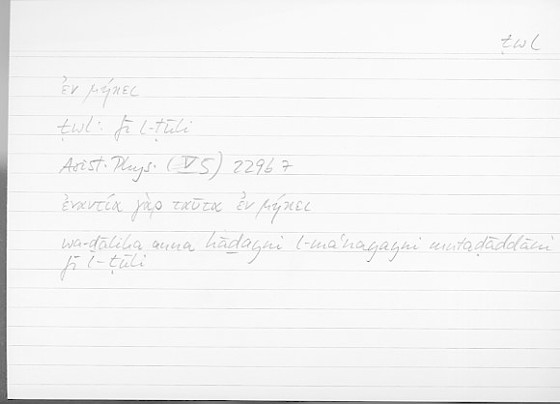 ṭwl
ἐν μήκει
ṭwl: fī l-ṭūli
Arist. Phys. (V 5) 229b 7
ἐναντία γὰρ ταῦτα ἐν μήκει
wa-ḏālika anna hāḏayni l-maʿnayayni mutaḍāddāni
fī l-ṭūli